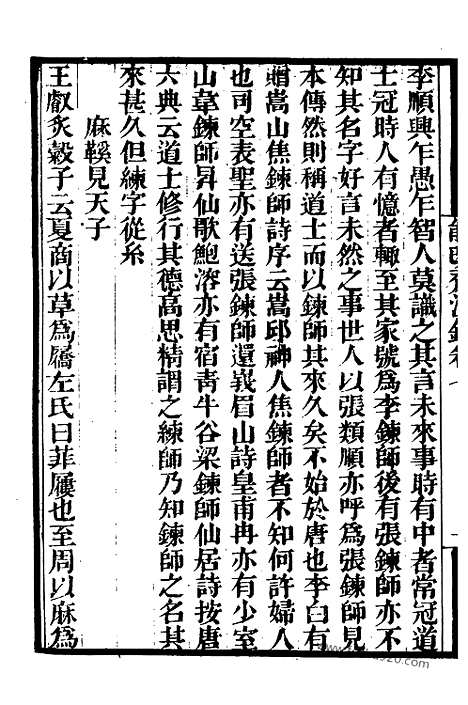 李順興乍愚乍智人莫識之其言未來事時有中者常冠道
士冠時人有憶者輙至其家號爲李鍊師後有張鍊師亦不
知其名字好言未然之事世人以張類順亦呼爲張鍊師見
本傳然則稱道士而以鍊師其來久矣不始於唐也李白有
贈嵩山焦鍊師詩序云嵩邱神人焦鍊師者不知何許婦人
也司空表聖亦有送張鍊師還峩眉山詩皇甫冉亦有少室
山韋鍊師昇仙歌鮑溶亦有宿靑牛谷梁鍊師仙居詩按唐
六典云道士修行其德高思精謂之練師乃知鍊師之名其
來甚久但練字從糸
麻鞵見天子
王叡炙轂子云夏商以草爲屩左氏曰菲屨也至周以麻爲